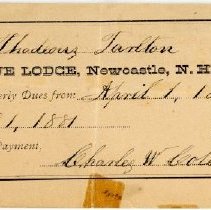 Thadeous Tarlton
NE LODGE, Newcastle, N. H
erly Dues from April 1, 18
1, 1881
Payment.
Charles W Col